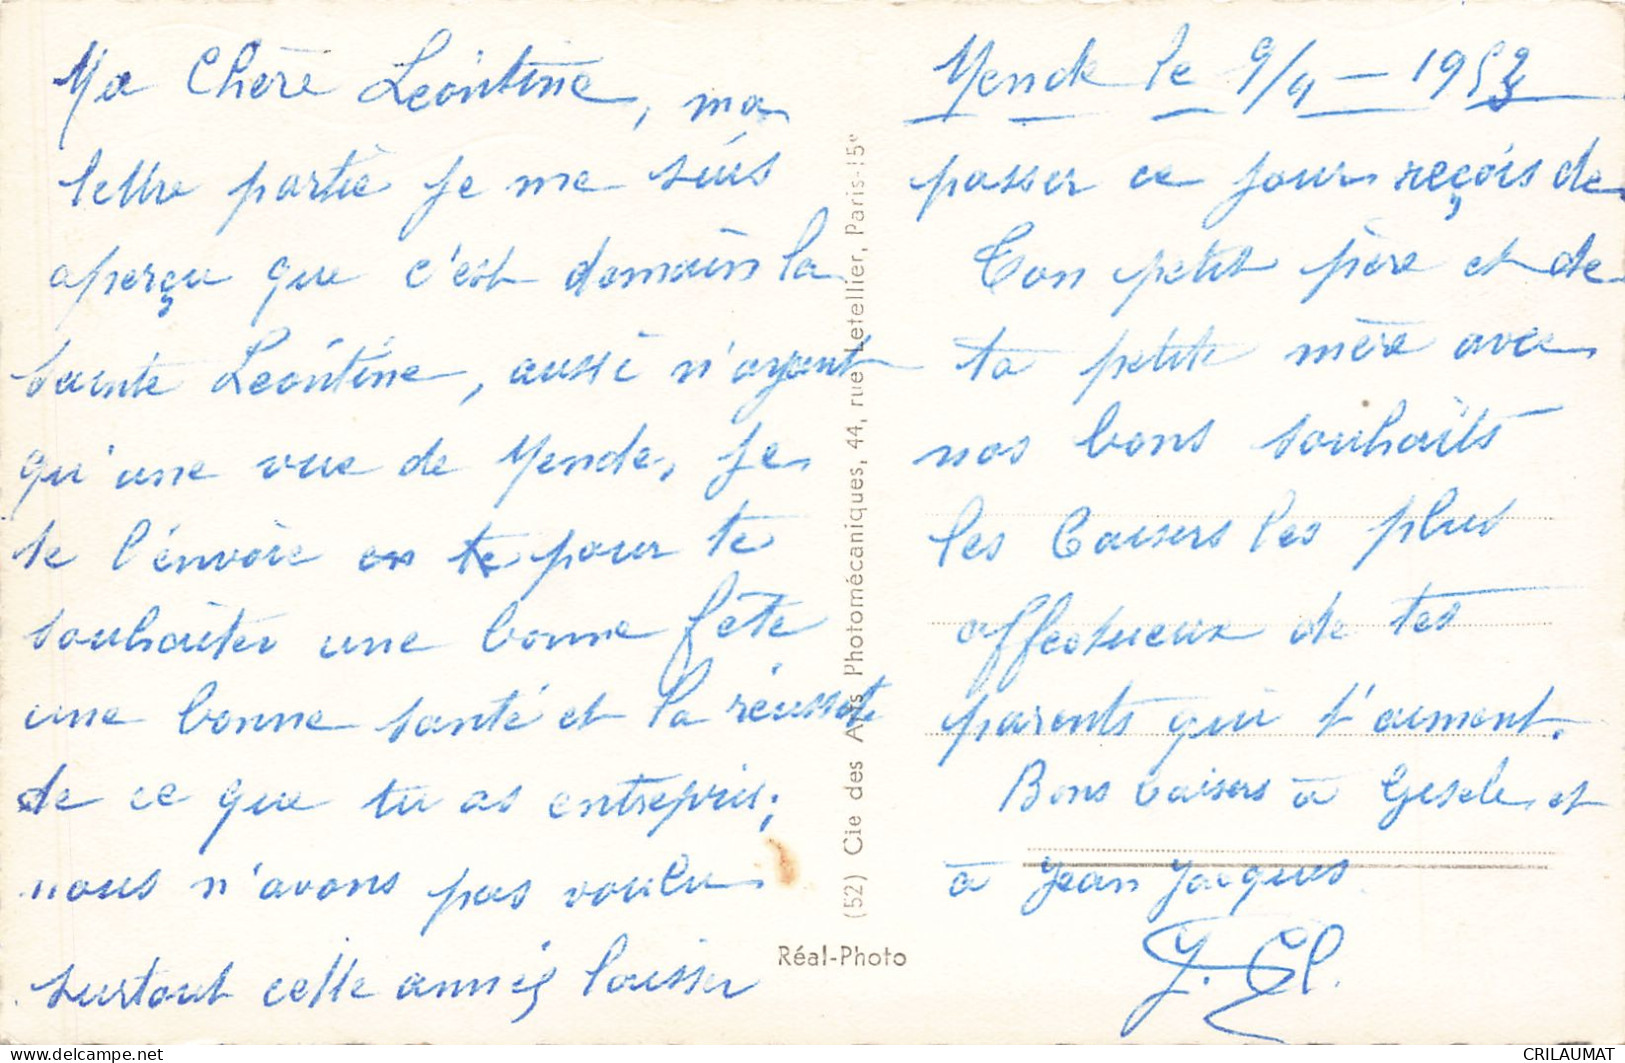 Ma Chère Léontine, ma
lettre partie je me suis
aperçu que c'est demain la
Sainte Léontine, aussi n'ayant
qu'une vue de Mende, je
te l'envoie en te pour te
souhaiter une bonne fête
une bonne santé et la réussite
de ce que tu as entrepris;
nous n'avons pas voulu
surtout cette année laisser
Mende le 9/4 - 1953
passer ce jour reçois de
Ton petit père et de
ta petite mère avec
nos bons souhaits
les baisers les plus
affectueux de tes
parents qui t'aiment.
Bons baisers à Gisèle et
à Jean Jacques
(52) Cie des Arts Photomécaniques, 44, rue Letellier, Paris-15e
Réal-Photo
CRILAUMAT